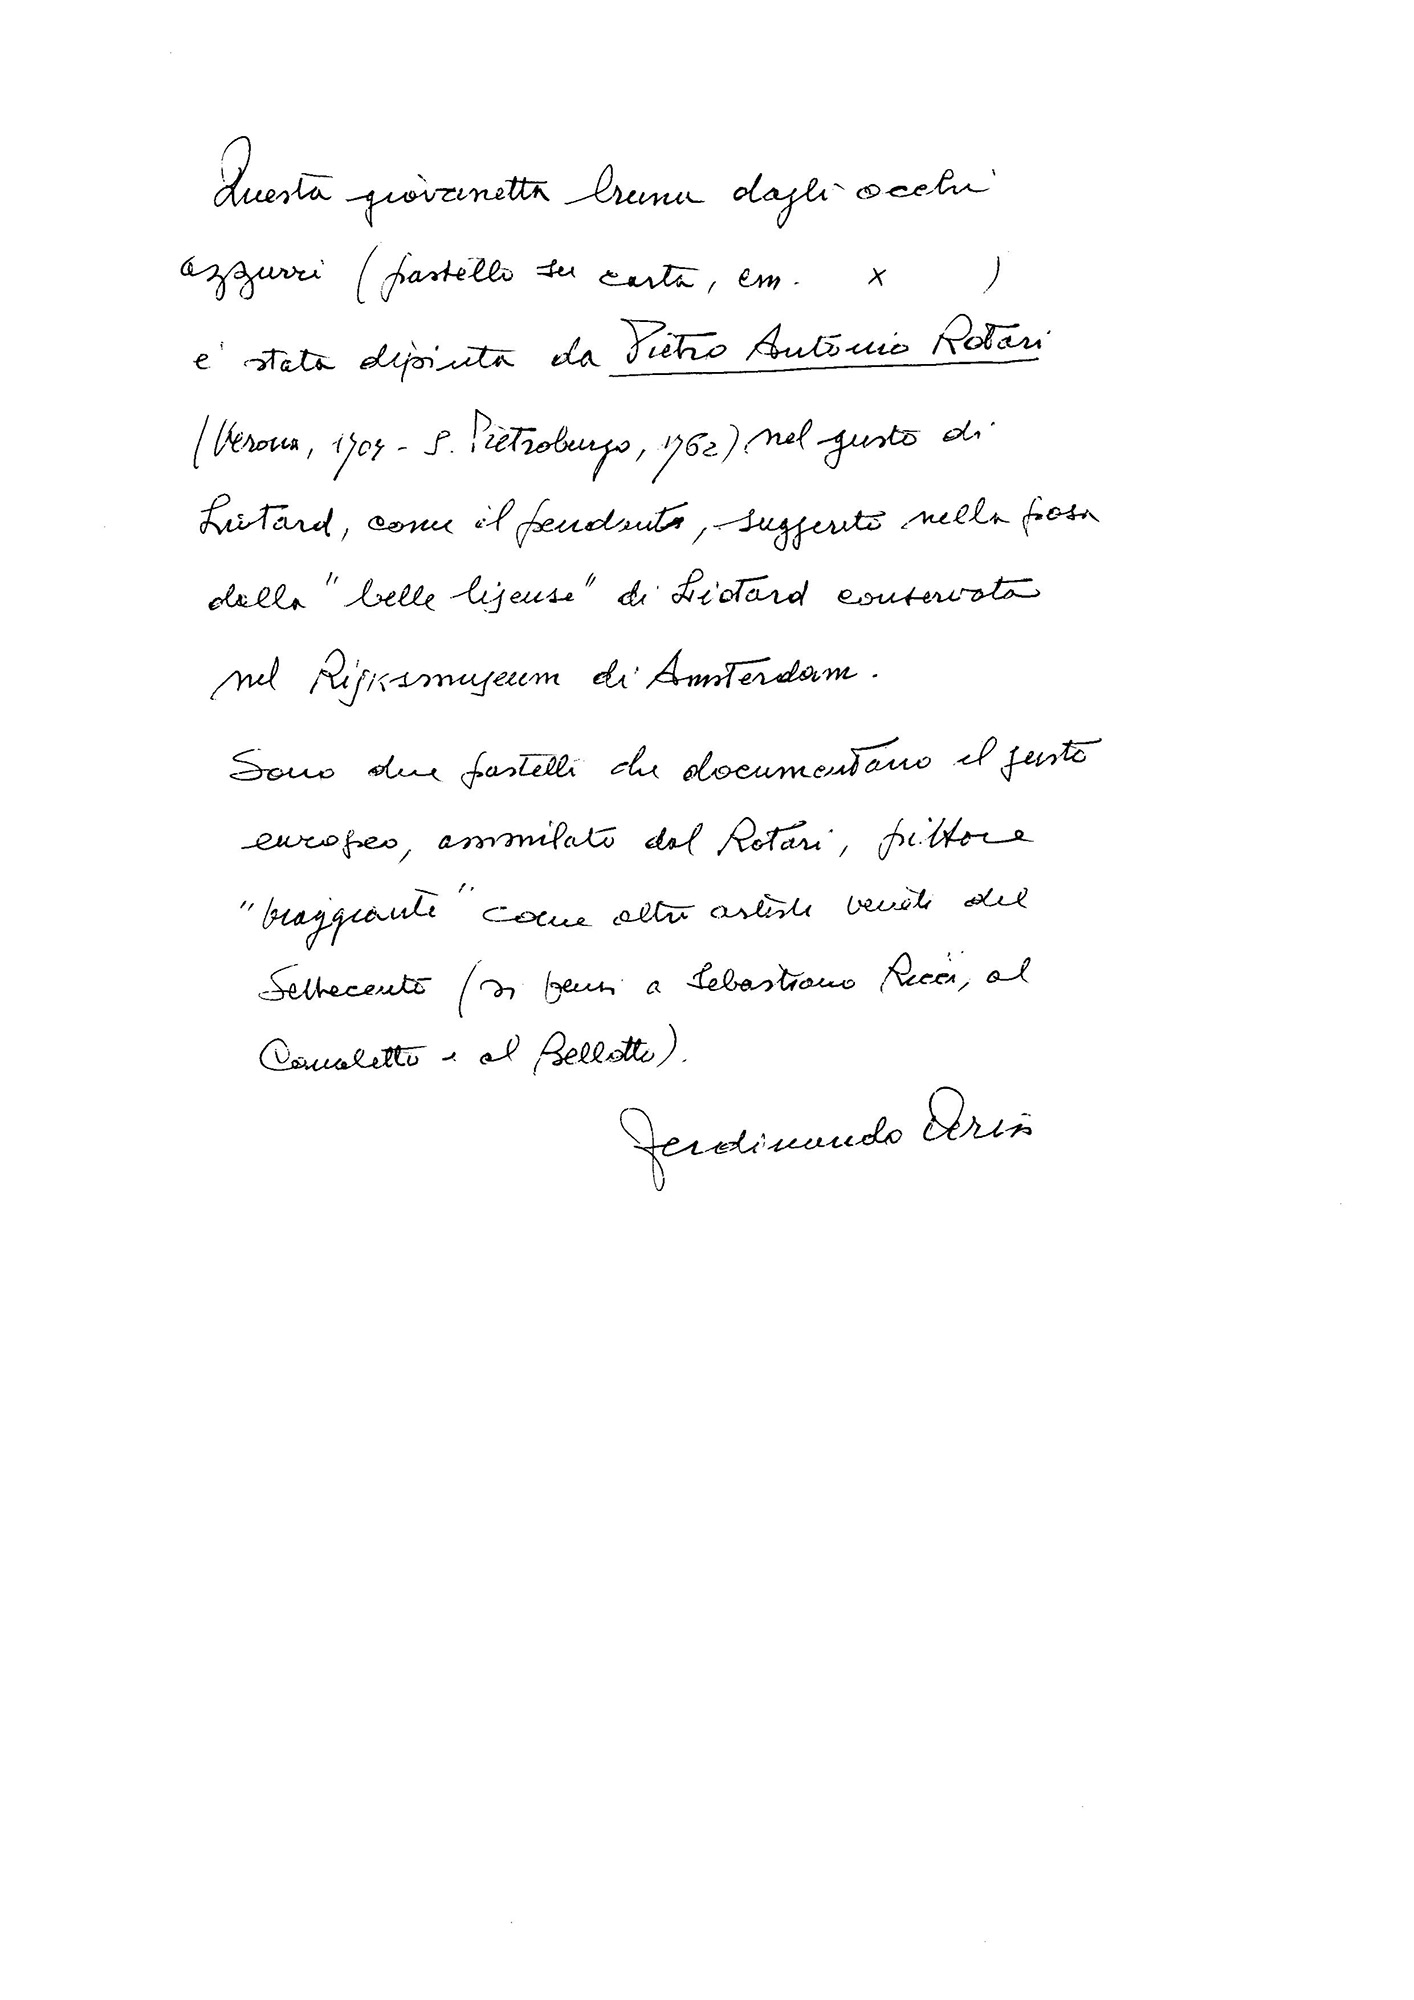 Questa giovanetta bruna dagli occhi
azzurri (pastello su carta, cm. x )
e' stata dipinta da Pietro Antonio Rotari
(Verona, 1707 - S. Pietroburgo, 1762) nel gusto di
Liotard, come il pendente, suggerito nella posa
dalla "belle liseuse" di Liotard conservata
nel Rijksmuseum di Amsterdam.
Sono due pastelli che documentano il gusto
europeo, assimilato dal Rotari, pittore
"viaggiante" come altri artisti veneti del
Settecento (si pensi a Sebastiano Ricci, al
Canaletto e al Bellotto).
Ferdinando Arisi